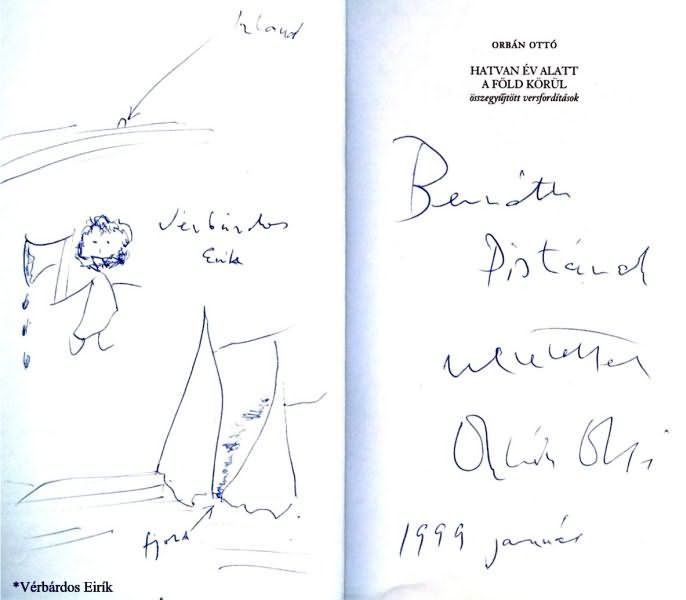 Izland
Vérbárdos
Eirik
fjord
*Vérbárdos Eirík
ORBÁN OTTÓ
HATVAN ÉV ALATT
A FÖLD KÖRÜL
összegyűjtött versfordítások
Bernáth
Pistának
szeretettel
Orbán Ottó
1999 január